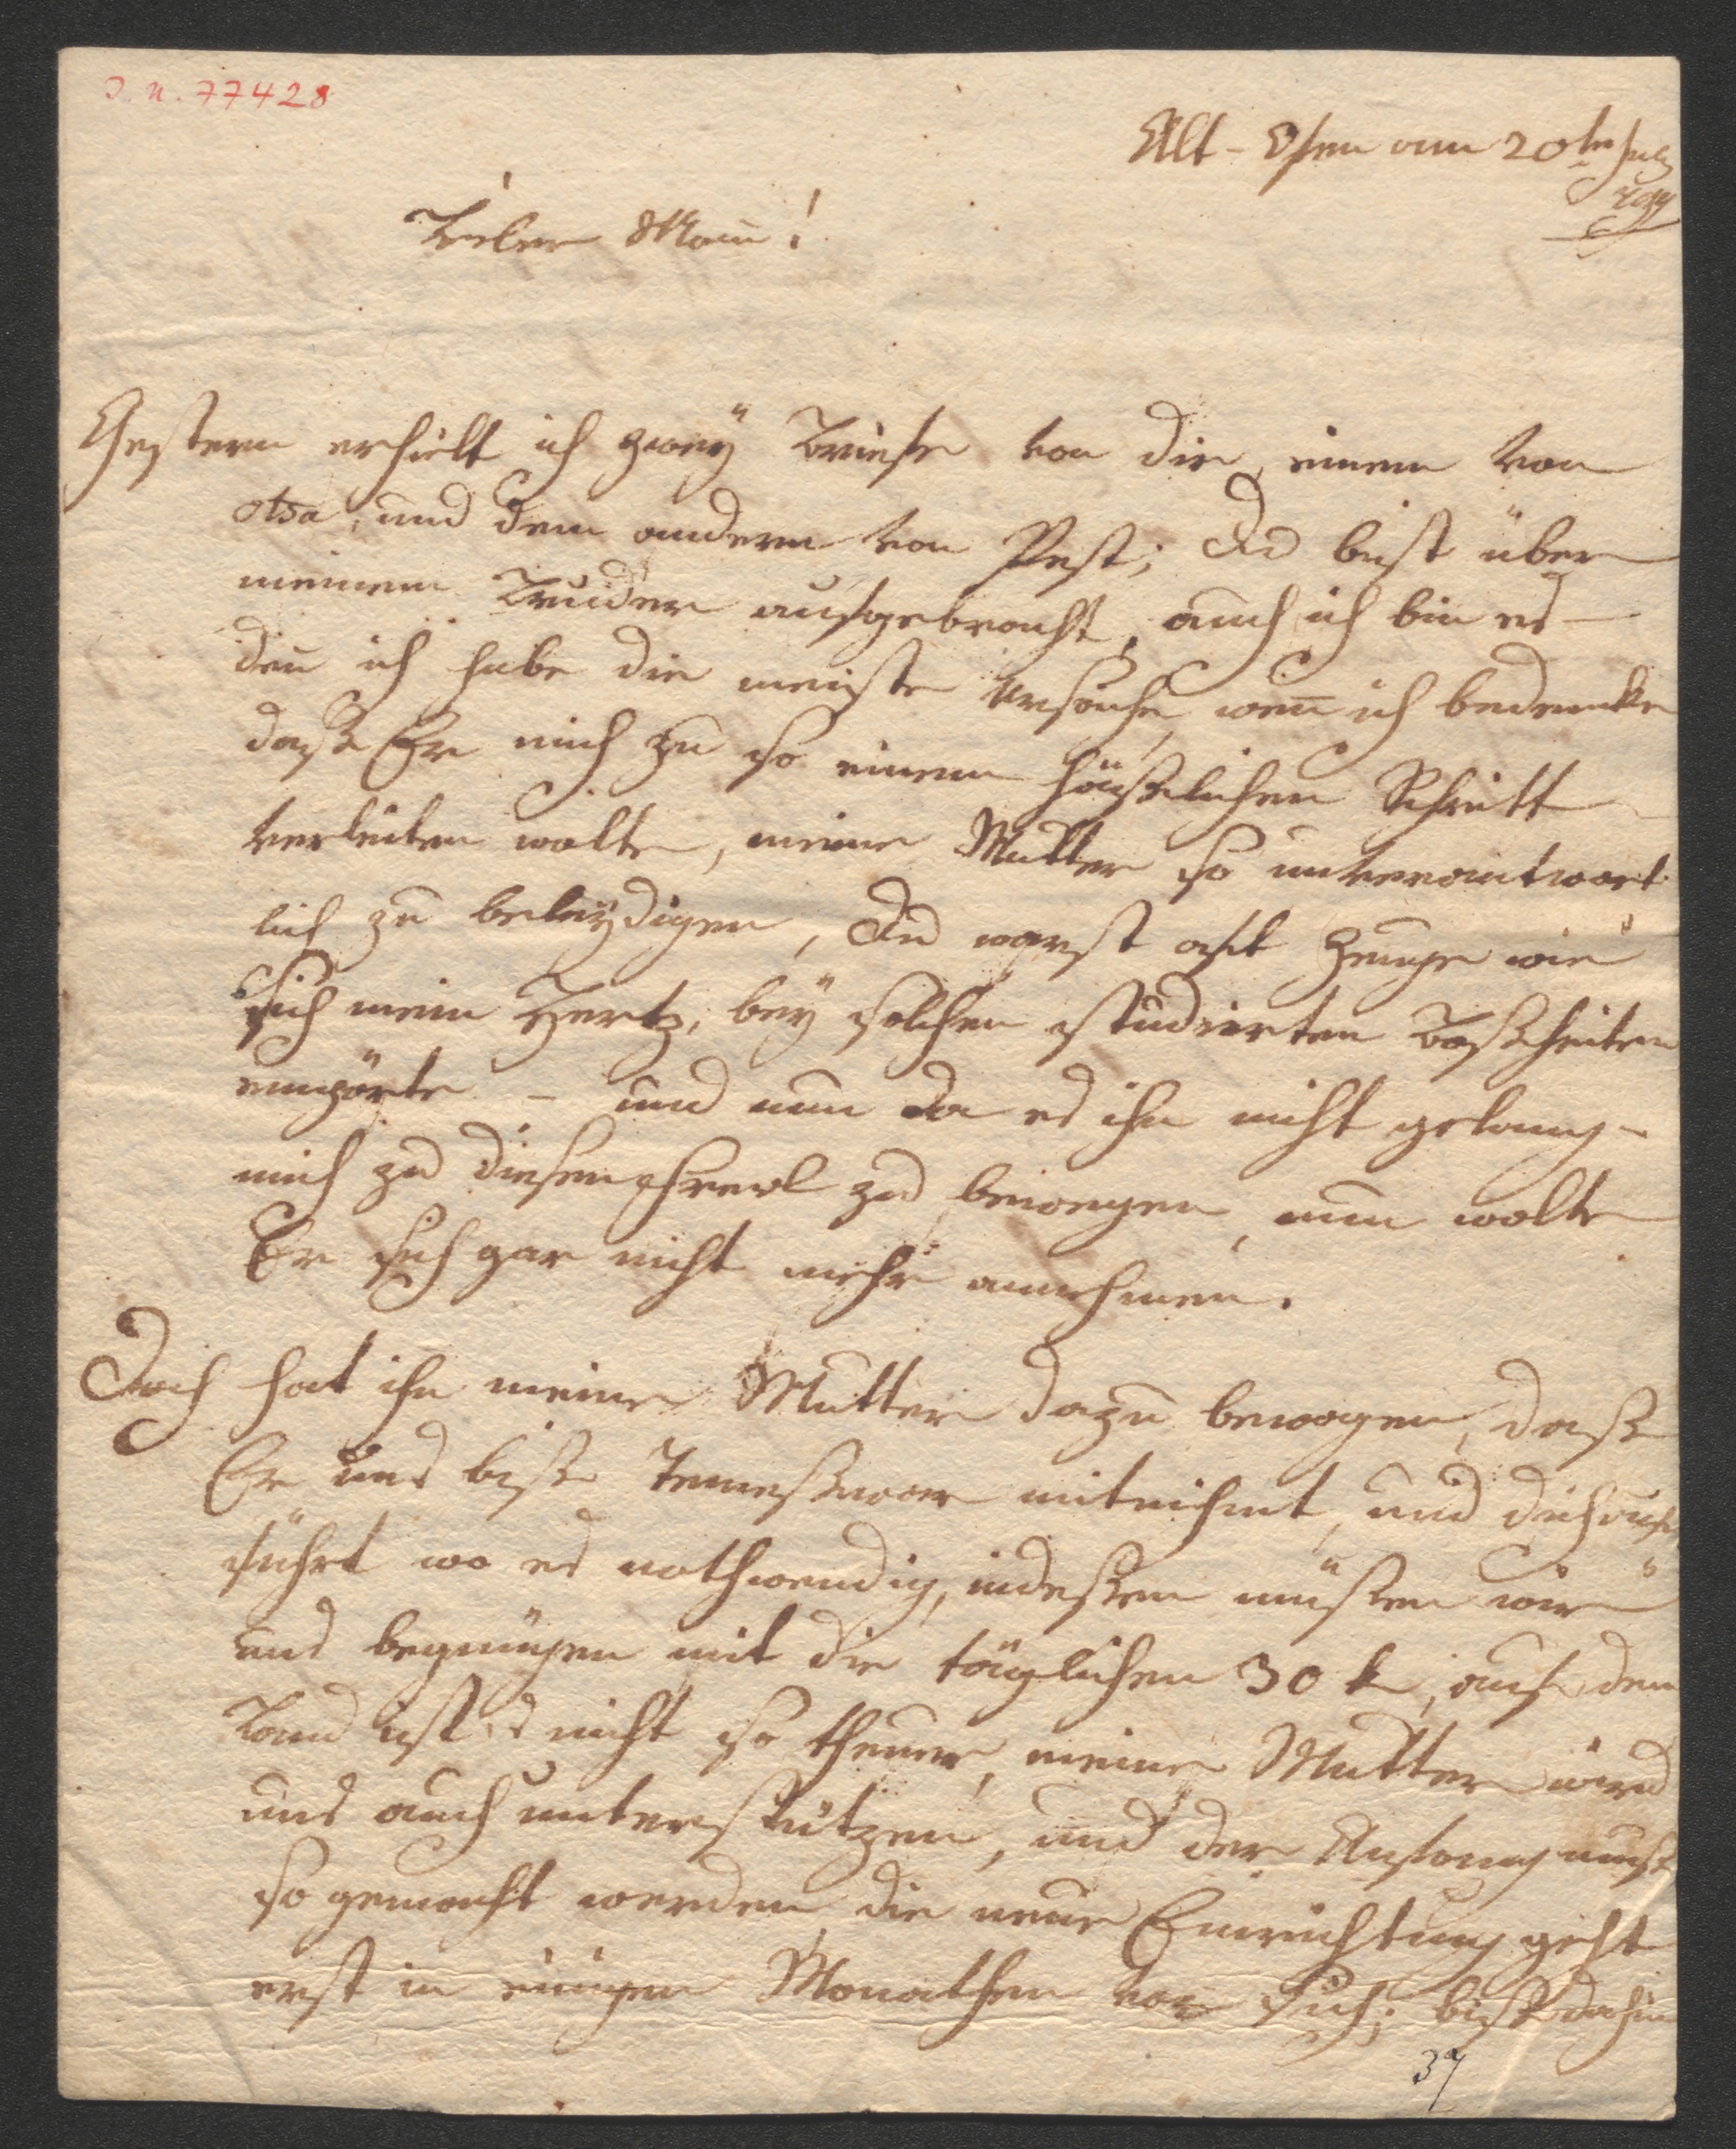 I. N. 77428
Alt-Ofen am 20ten July
799
Lieber Mann!
Gestern erhielt ich zweÿ Briefe von dir, einem von
otsa, und dem andern von Pest; du bist über
meinem Bruder aufgebracht, auch ich bin es –
den̄ ich habe die meiste Ursache, wen̄ ich bedencke
daß Er mich zu so einem häßlichen Schritt
verleiten wolte, meine Mutter so unverantwort
lich zu beleÿdigen, du warst oft Zeuge wie
sich mein Hertz, beÿ solchen studierten Boßheiten
empörte – und nun da es ihn nicht gelang –
mich zu diesen Frevl zu bewegen, nun wolte
Er sich gar nicht mehr annehmen.
Doch hat ihn meine Mutter dazu bewogen, daß
Er uns biß Temeßwar mitnihmt, und dich auf
führt wo es nothwendig, indeßen müßen wir
uns begnügen mit die täglichen 30 k, auf dem
Land ist es nicht so theuer, meine Mutter wird
uns auch unterstützen, und der Anfang muß
so gemacht werden, die neue Einrichtung geht
erst in einigen Monathen vor sich; biß dahin
37